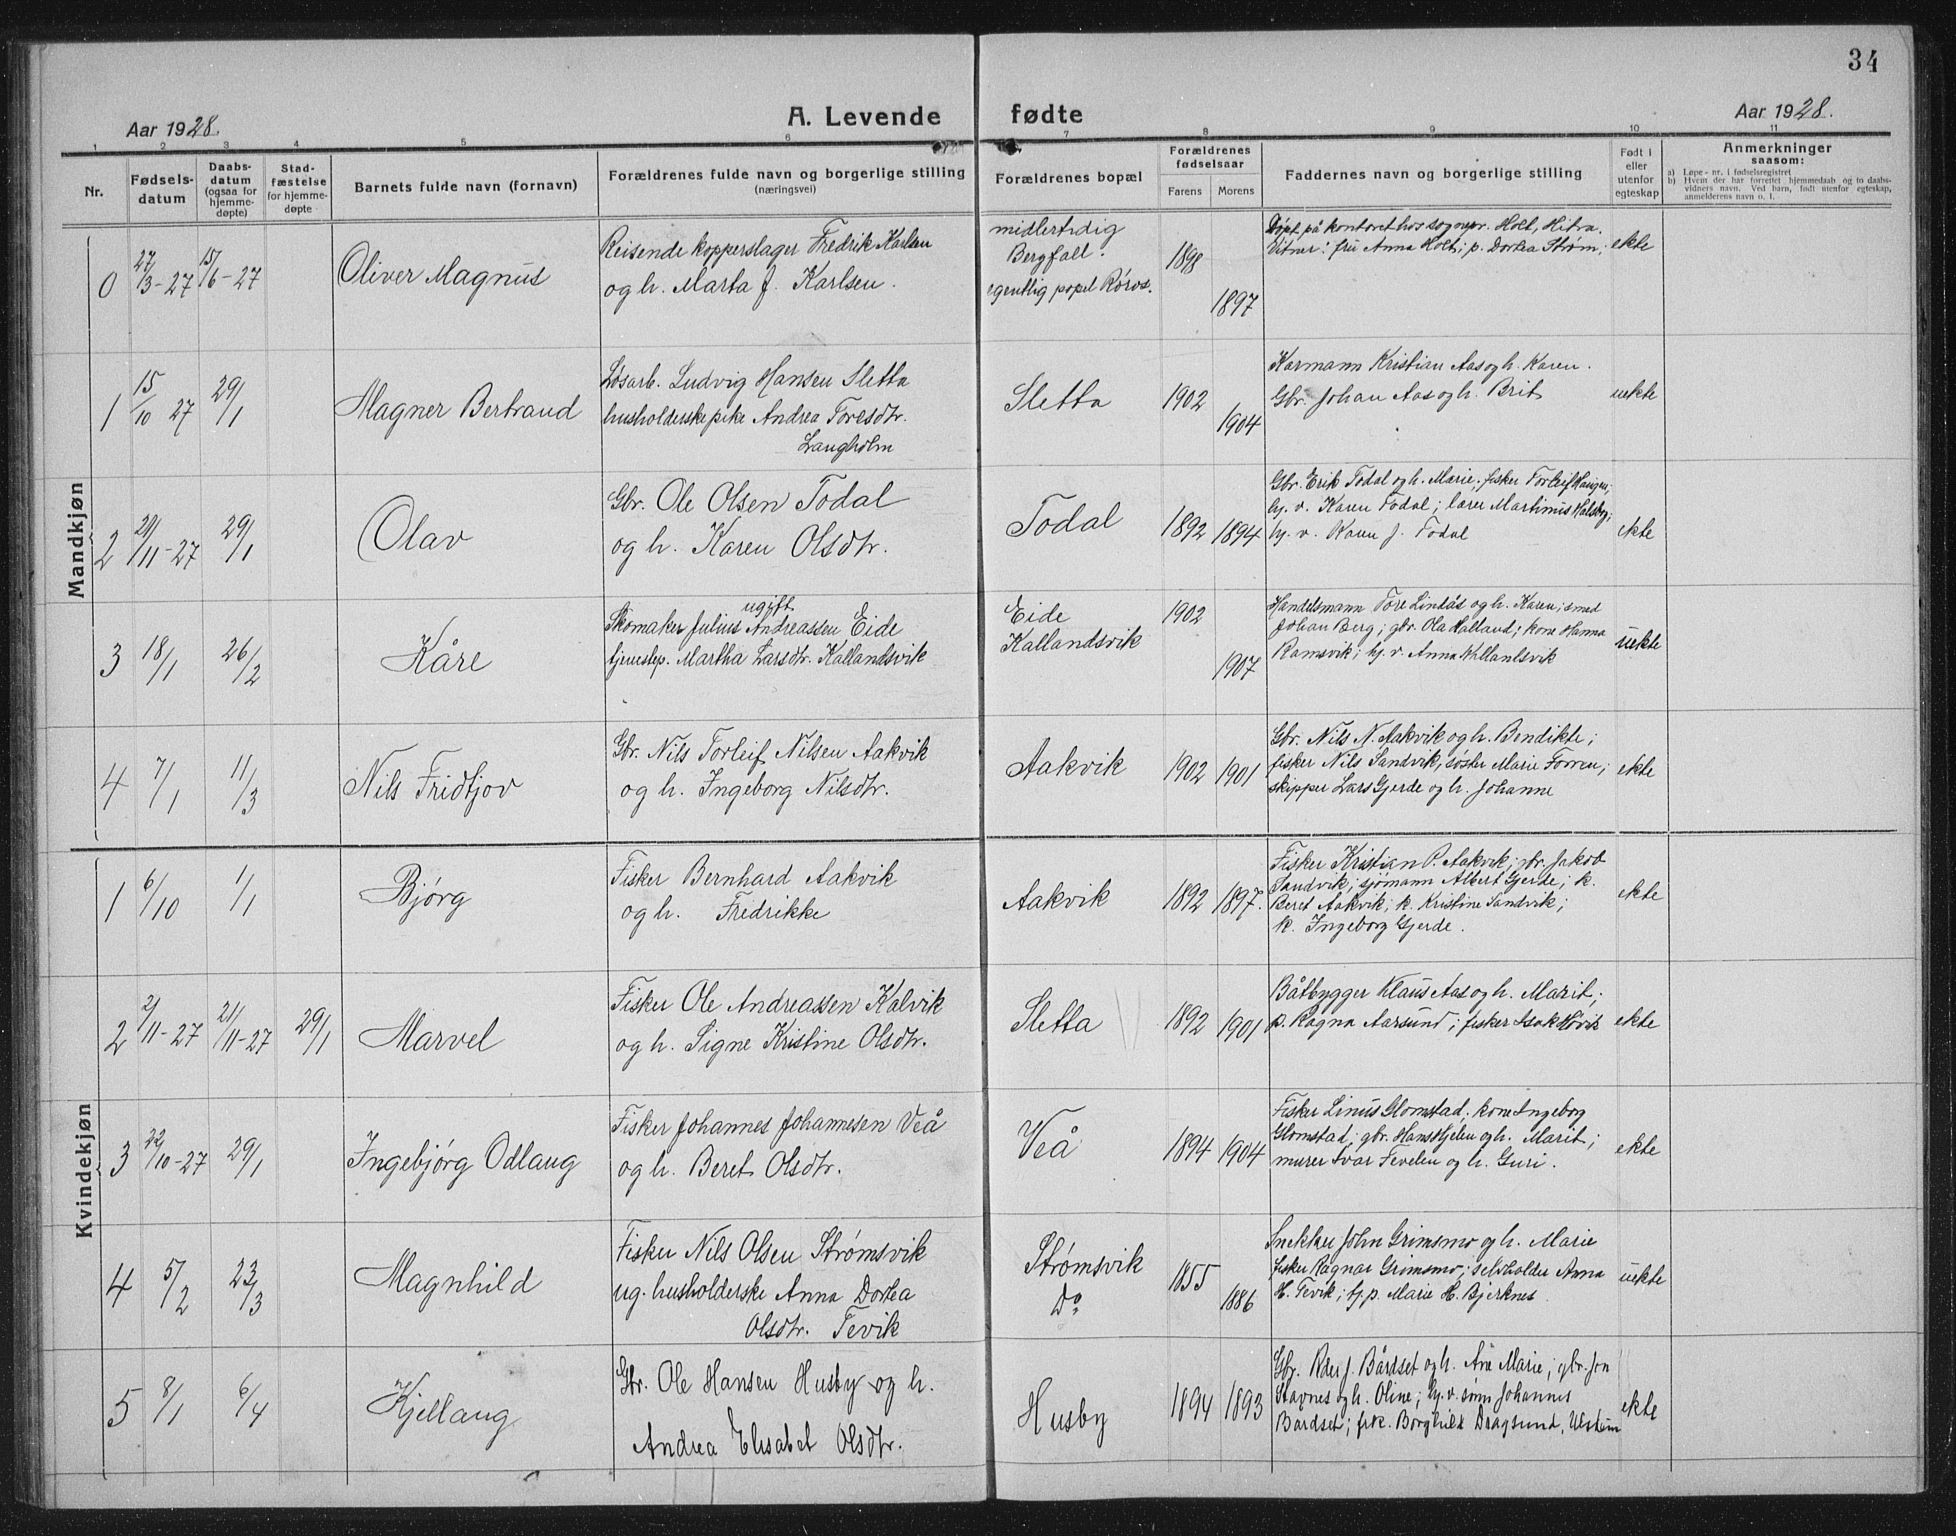 34
Aar 1928.
A. Levende fødte
Aar 1928.
1 2 3 4 5 6 7 8 9 10 11
Nr.
Fødsels-
datum
Daabs-
datum
(ogsaa for
hjemme-
døpte)
Stad-
fæstelse
for hjemme-
døpte
Barnets fulde navn (fornavn)
Forældrenes fulde navn og borgerlige stilling
(næringsvei)
Forældrenes bopæl
Forældrenes
fødselsaar
Farens Morens
Faddernes navn og borgerlige stilling
Født i
eller
utenfor
egteskap
Anmerkninger
saasom:
a) Løpe-nr. i fødselsregistret
b) Hvem der har forrettet hjemmedaab og to daabs-
vidners navn. Ved barn, født utenfor egteskap,
anmelderens navn o. l.
Mandkjøn
0 27/3-27 15/6-27
Oliver Magnus
Reisende kopperslager Fredrik Karlsen
og h. Marta J. Karlsen.
midlertidig
Bergfall.
egentlig popel Røros.
1898
1897
Døpt på kontoret hos sognepr. Holt, Hitra.
Vitner: fru Anna Holt; p. Dortea Strøm;
ekte
1 15/10 27 29/1
Magner Bertrand
Løsarb. Ludvig Hansen Sletta
husholderske pike Andrea Toresdtr.
Langholm
Sletta
1902
1904
Kármann Kristian Aas og h. Karen.
Gbr. Johan Aas og h. Brit
uekte
2 29/11-27 29/1
Olav
Gbr. Ole Olsen Todal
og h. Karen Olsdtr.
Todal
1892 1894
Gbr. Erik Todal og h. Marie; fisker Torleif Haugen;
hj. v. Karen Todal; lærer Martinius
hj. v. Karen J. Todal
ekte
3 18/1 26/2
Kåre
ugift
Skomaker Julius Andreassen Eide
tjenestep. Martha Larsdtr. Kallandsvik
Eide
Kallandsvik
1902
1907
Handelsmann Tore Lindås og h. Karen; smed
Johan Berg; gbr. Ola Halland; kone Hanna
Ramsvik; hj. v. Anna Kallandsvik
uekte
4 7/1 11/3
Nils Fridtjov
Gbr. Nils Torleif Nilsen Aakvik
og h. Ingeborg Nilsdtr.
Aakvik
1902 1901
Gbr. Nils N. Aakvik og h. Bendikte;
fisker Nils Sandvik, søster Marie Forren;
skipper Lars Gjerde og h. Johanne
ekte
Kvindekjøn
1 6/10 1/1
Bjørg
Fisker Bernhard Aakvik
og h. Fredrikke
Aakvik
1892 1897.
Fisker Kristian P. Aakvik; gbr. Jakob
Sandvik; sjømann Albert Gjerde; k.
Beret Aakvik; k. Kristine Sandvik;
k. Ingeborg Gjerde.
ekte
2 2/11-27 21/11-27 29/1
Marvel
Fisker Ole Andreassen Kalvik
og h. Signe Kristine Olsdtr.
Sletta
1892 1901
Båtbygger Klaus Aas og h. Marit;
p. Ragna Aarsund; fisker Isak
ekte
3 22/10-27 29/1
Ingebjørg Odlaug
Fisker Johannes Johannesen Veå
og h. Beret Olsdtr.
Veå
1894 1904
Fisker Linus Glomstad; kone Ingeborg
Glomstad; gbr. Hans Hjelen og h. Marit;
murer Ivar Fevelen og h. Guri.
ekte
4 5/2 23/3
Magnhild
Fisker Nils Olsen Strømsvik
ug. husholderske Anna Dortea
Olsdtr. Tevik
Strømsvik
Do
1855
1886
Snekker John Grimsmo og h. Marie
fisker Ragnar Grimsmo; selvholder Anna
H. Tevik; hj. p. Marie H. Bjerknes
uekte
5 8/1 6/4
Kjellaug
Gbr. Ole Hansen Husby og h.
Andrea Elisabet Olsdtr.
Husby
1894 1893
Gbr. Peder J. Bårdset og h. Ane Marie; gbr. Jon
Stavnes og h. Oline; hj. v. sønn Johannes
Bårdset; frk. Borghild Dragsund,
ekte